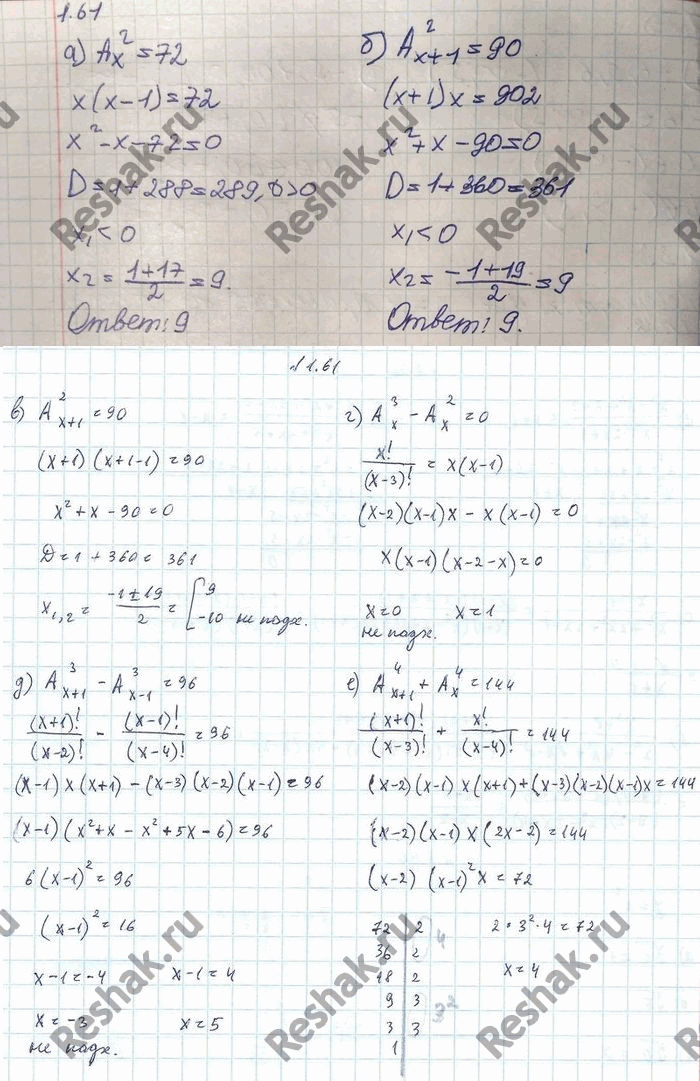 1.61
а) A_x^2 = 72
x(x-1)=72
x^2-x-72=0
D=1+288=289, D>0
x_1<0
x_2 = (1+17)/2 = 9.
Ответ: 9
б) A_{x+1}^2 = 90
(x+1)x = 902
x^2+x-90=0
D=1+360=361
x_1<0
x_2 = (-1+19)/2 = 9
Ответ: 9.
№1.61
в) A_{x+1}^2 = 90
(x+1)(x+1-1)=90
x^2+x-90=0
D=1+360=361
x_{1,2} = (-1±19)/2 = [ 9
-10 не подх.
г) A_x^3 - A_x^2 = 0
x!/(x-3)! = x(x-1)
(x-2)(x-1)x - x(x-1) = 0
x(x-1)(x-2-x)=0
x=0 x=1
не подх.
д) A_{x+1}^3 - A_{x-1}^3 = 96
(x+1)!/(x-2)! - (x-1)!/(x-4)! = 96
(x-1)x(x+1) - (x-3)(x-2)(x-1) = 96
(x-1)(x^2+x-x^2+5x-6)=96
6(x-1)^2=96
(x-1)^2=16
x-1=-4 x-1=4
x=-3 x=5
не подх.
е) A_{x+1}^4 + A_x^4 = 144
(x+1)!/(x-3)! + x!/(x-4)! = 144
(x-2)(x-1)x(x+1)+(x-3)(x-2)(x-1)x=144
(x-2)(x-1)x(2x-2)=144
(x-2)(x-1)^2x=72
72 | 2
36 | 2
18 | 2
9 | 3
3 | 3
1
4
2·3^2·4=72
x=4
Reshak.ru
Reshak.ru
Reshak.ru
Reshak.ru
Reshak.ru
Reshak.ru